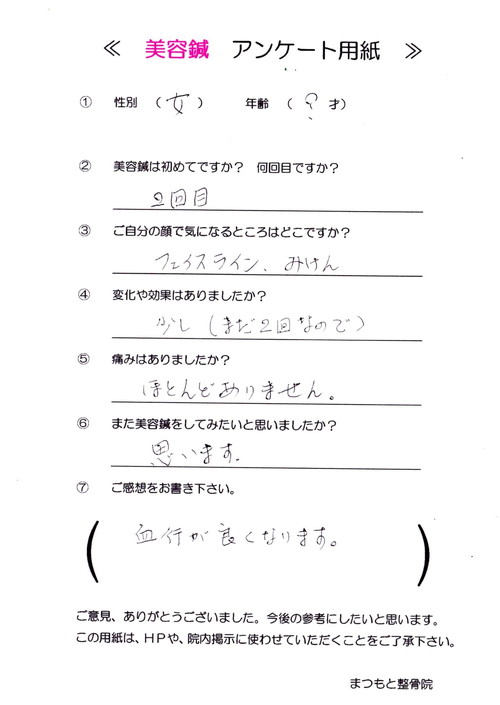 ≪ 美容鍼 アンケート用紙 ≫
① 性別 （女） 年齢 （？才）
② 美容鍼は初めてですか？ 何回目ですか？
2回目
③ ご自分の顔で気になるところはどこですか？
フェイスライン、みけん
④ 変化や効果はありましたか？
少し（まだ2回なので）
⑤ 痛みはありましたか？
ほとんどありません。
⑥ また美容鍼をしてみたいと思いましたか？
思います。
⑦ ご感想をお書き下さい。
（血行が良くなります。）
ご意見、ありがとうございました。今後の参考にしたいと思います。
この用紙は、ＨＰや、院内掲示に使わせていただくことをご了承下さい。
まつもと整骨院